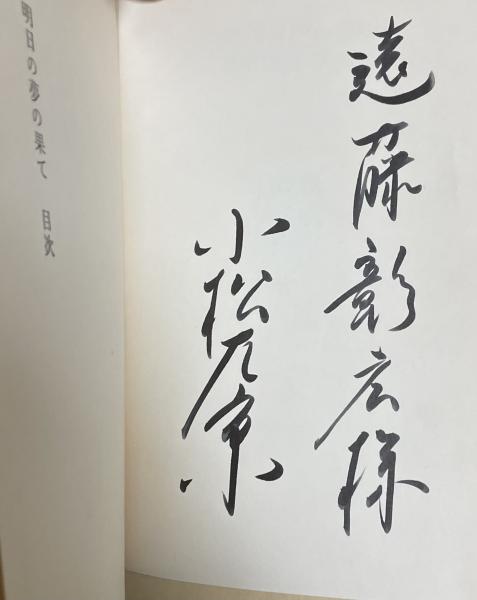 遠藤彰広様
小松左京
明日の夢の果て 目次